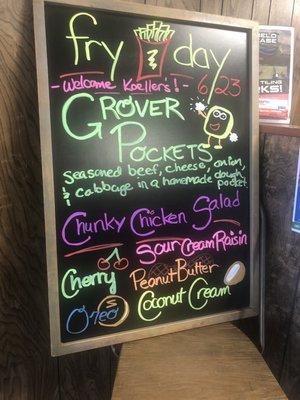 fry day
- Welcome Koeller's! - 6/23
GROVER
POCKETS
seasoned beef, cheese, onion,
& cabbage in a homemade dough
pocket.
Chunky Chicken Salad
Sour Cream Raisin
Cherry Peanut Butter
Oreo Coconut Cream